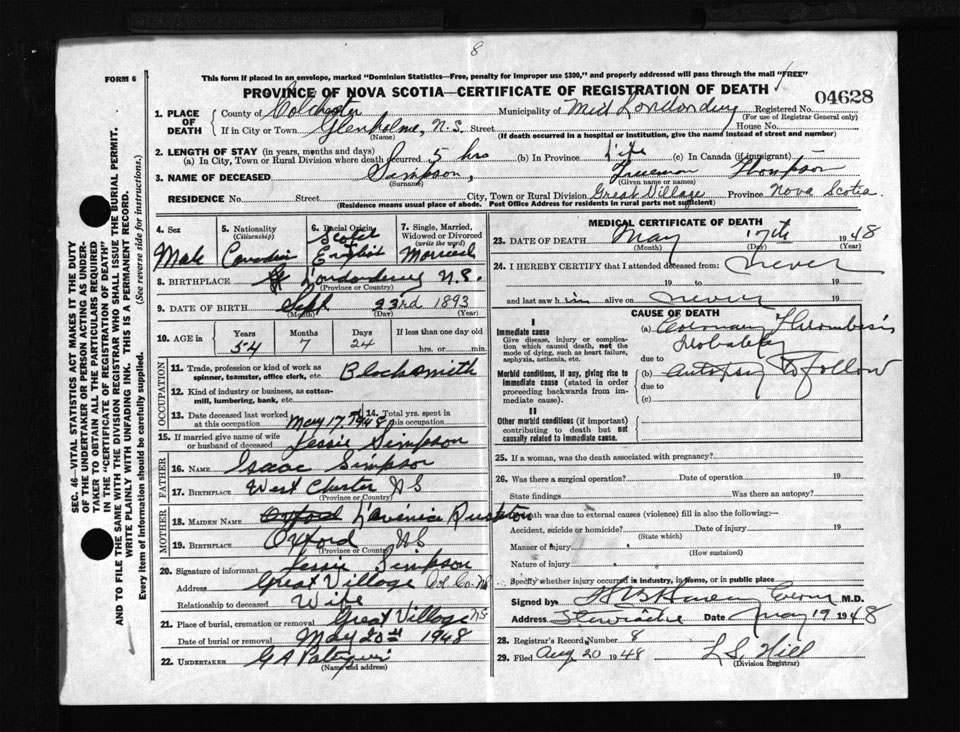 8
FORM 6
This form if placed in an envelope, marked "Dominion Statistics—Free, penalty for improper use $300," and properly addressed will pass through the mail "FREE"
PROVINCE OF NOVA SCOTIA—CERTIFICATE OF REGISTRATION OF DEATH
04628
1. PLACE OF DEATH
County of Colchester Municipality of Mid Londonderry Registered No.
(For use of Registrar General only)
If in City or Town Glenholme, N.S. Street House No.
(Name) (If death occurred in a hospital or institution, give the name instead of street and number)
2. LENGTH OF STAY (in years, months and days)
(a) In City, Town or Rural Division where death occurred 5 hrs (b) In Province Life (c) In Canada (if immigrant) —
3. NAME OF DECEASED Simpson, Freeman Thompson
(Surname) (Given name or names)
RESIDENCE No. Street City, Town or Rural Division Great Village Province Nova Scotia
(Residence means usual place of abode. Post Office Address for residents in rural parts not sufficient)
4. Sex
Male
5. Nationality
(Citizenship)
Canadian
6. Racial Origin
Scotch
English
7. Single, Married, Widowed or Divorced
(write the word)
Married
8. BIRTHPLACE Londonderry N.S.
(Province or Country)
9. DATE OF BIRTH Sept 23rd 1893
(Month) (Day) (Year)
10. AGE in
Years Months Days If less than one day old
54 7 24 hrs. or min.
OCCUPATION
11. Trade, profession or kind of work as spinner, teamster, office clerk, etc. Blacksmith
12. Kind of industry or business, as cotton-mill, lumbering, bank, etc.
13. Date deceased last worked at this occupation May 17, 1948
14. Total yrs. spent in this occupation
15. If married give name of wife or husband of deceased Jessie Simpson
FATHER
16. NAME Isaac Simpson
17. BIRTHPLACE West Chester NS
(Province or Country)
MOTHER
18. MAIDEN NAME Oxford Lavenice Rushton
19. BIRTHPLACE Oxford NS
(Province or Country)
20. Signature of informant Jessie Simpson
Address Great Village Col. Co. NS
Relationship to deceased Wife
21. Place of burial, cremation or removal Great Village NS
Date of burial or removal May 20th 1948
22. UNDERTAKER G A
(Name and address)
MEDICAL CERTIFICATE OF DEATH
23. DATE OF DEATH May 17th 1948
(Month) (Day) (Year)
24. I HEREBY CERTIFY that I attended deceased from: never
19 to 19
and last saw him alive on never 19
CAUSE OF DEATH
I
Immediate cause
Give disease, injury or complication which caused death, not the mode of dying, such as heart failure, asphyxia, asthenia, etc.
(a) Coronary Thrombosis
probably
due to
Morbid conditions, if any, giving rise to immediate cause (stated in order proceeding backwards from immediate cause).
(b) Autopsy to follow
due to
(c)
II
Other morbid conditions (if important) contributing to death but not causally related to immediate cause.
25. If a woman, was the death associated with pregnancy?
26. Was there a surgical operation? Date of operation 19
State findings Was there an autopsy?
death was due to external causes (violence) fill in also the following:—
Accident, suicide or homicide? Date of injury 19
(State which)
Manner of injury
(How sustained)
Nature of injury
Specify whether injury occurred in industry, in home, or in public place
Signed by M.D.
Address Stewiacke Date May 17 1948
28. Registrar's Record Number 8
29. Filed Aug 20 1948 L S. Hill
(Division Registrar)
SEC. 46—VITAL STATISTICS ACT MAKES IT THE DUTY
OF THE UNDERTAKER OR PERSON ACTING AS UNDER-
TAKER TO OBTAIN ALL THE PARTICULARS REQUIRED
IN THE "CERTIFICATE OF REGISTRATION OF DEATH"
AND TO FILE THE SAME WITH THE DIVISION REGISTRAR WHO SHALL ISSUE THE BURIAL PERMIT.
WRITE PLAINLY WITH UNFADING INK. THIS IS A PERMANENT RECORD.
Every item of information should be carefully supplied. (See reverse side for instructions.)